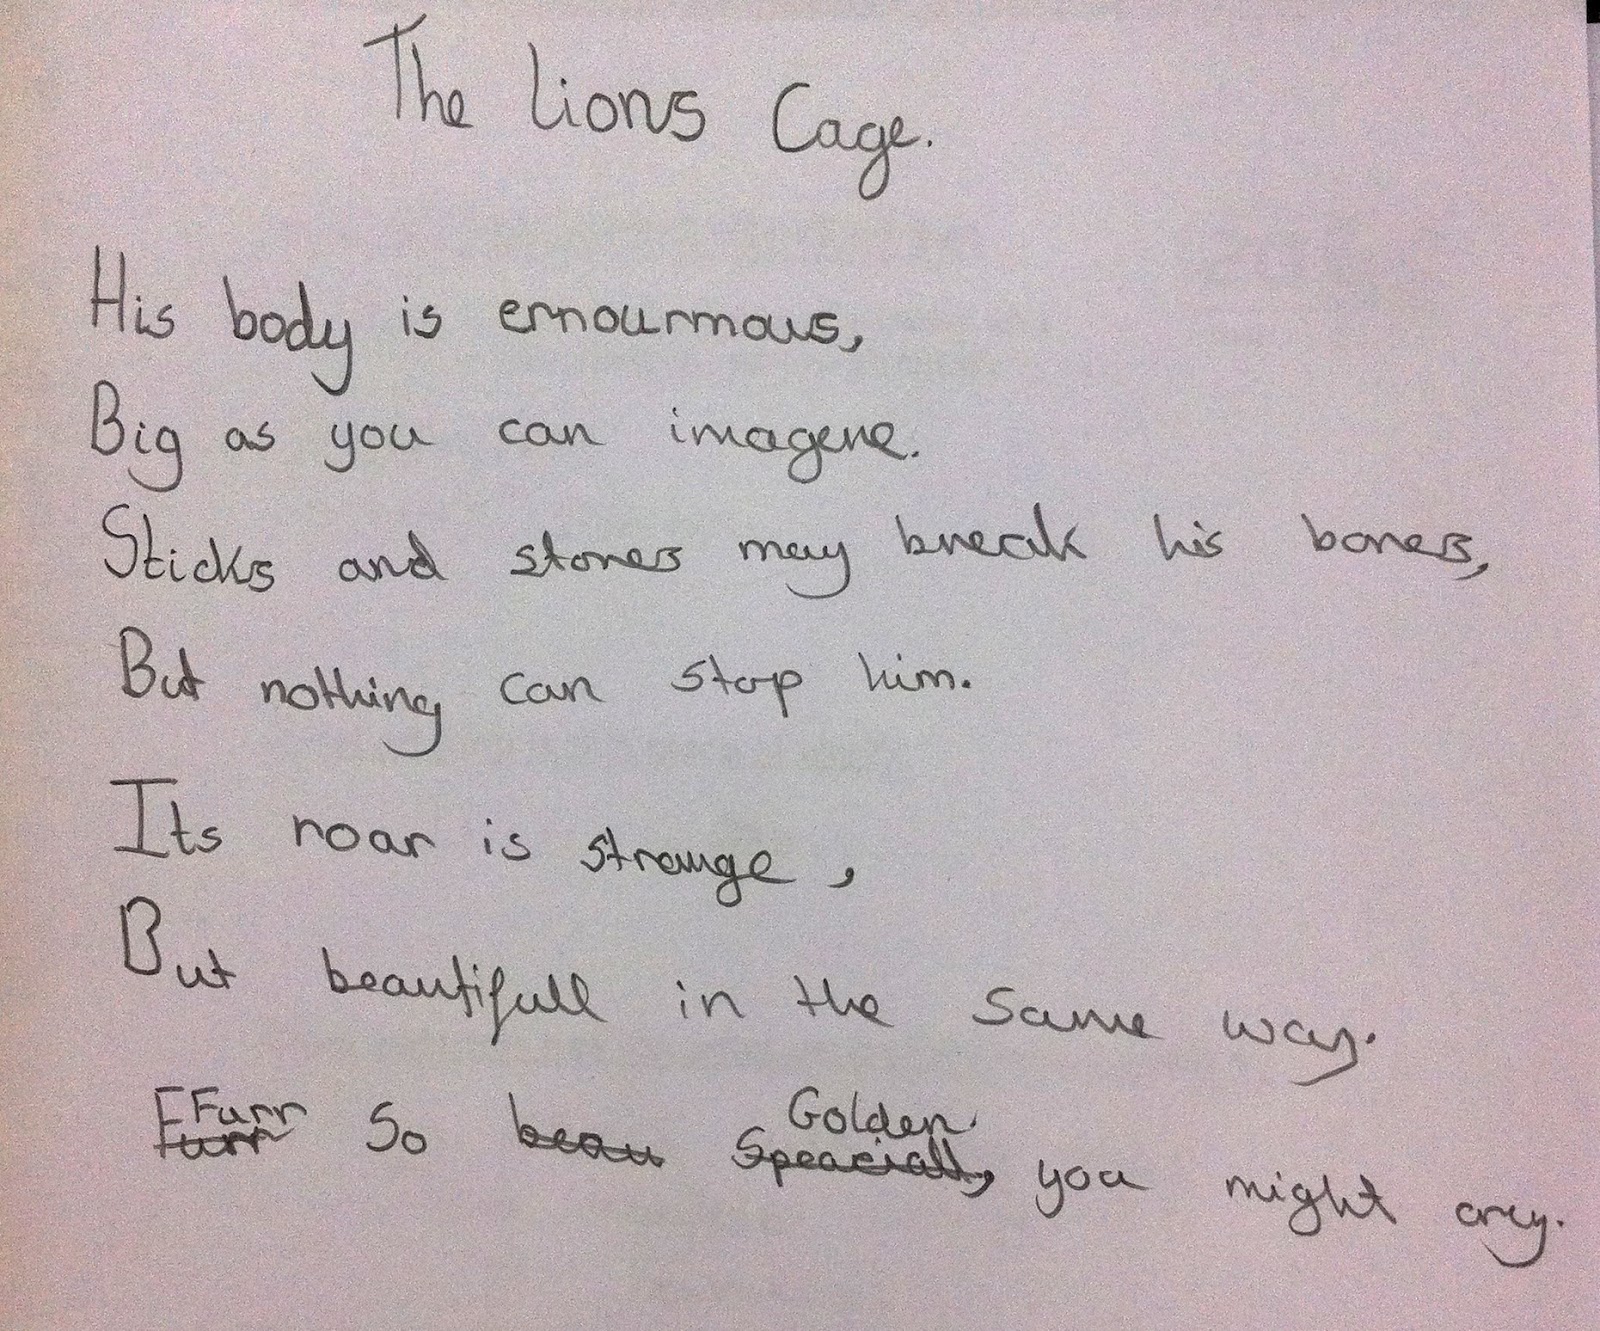 The Lions Cage.
His body is ernourmous,
Big as you can imagene.
Sticks and stones may break his bones,
But nothing can stop him.
Its roar is strange,
But beautifull in the same way.
Furr So Golden, you might cry.